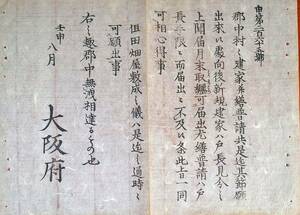 申第二百六十五号
郡中村々建家并繕普請共是迄其節願
出来候処向後新規建家ハ戸長見分之
上聞届月末取纏可届出尤繕普請ハ戸
長手限ニ而届出ニ不及候条此旨一同
可相心得事
但田畑屋敷成之儀ハ是迄之通時々
可願出事
右之趣郡中無洩相達るもの也
壬申八月
大阪府